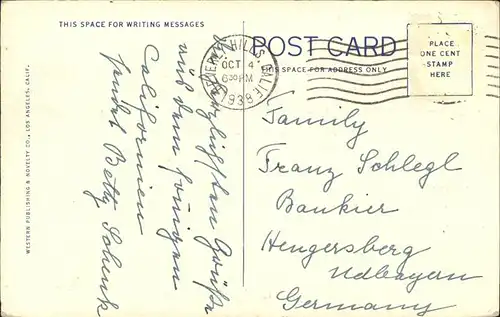 THIS SPACE FOR WRITING MESSAGES
POST CARD
THIS SPACE FOR ADDRESS ONLY
PLACE
ONE CENT
STAMP
HERE
BEVERLY HILLS, CALIF.
OCT 4
6 30 PM
1938
WESTERN PUBLISHING & NOVELTY CO., LOS ANGELES, CALIF.
Herzlichsten Grüße
aus dem sonnigen
Californien
sendet Betty Schenk
Family
Franz Schlegl
Bankier
Hengersberg
Ndbayern
Germany